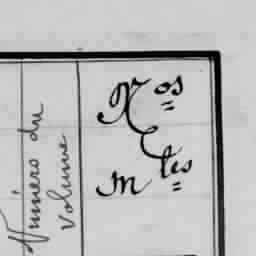 Numéro du
Volume
Nos
et
Mles